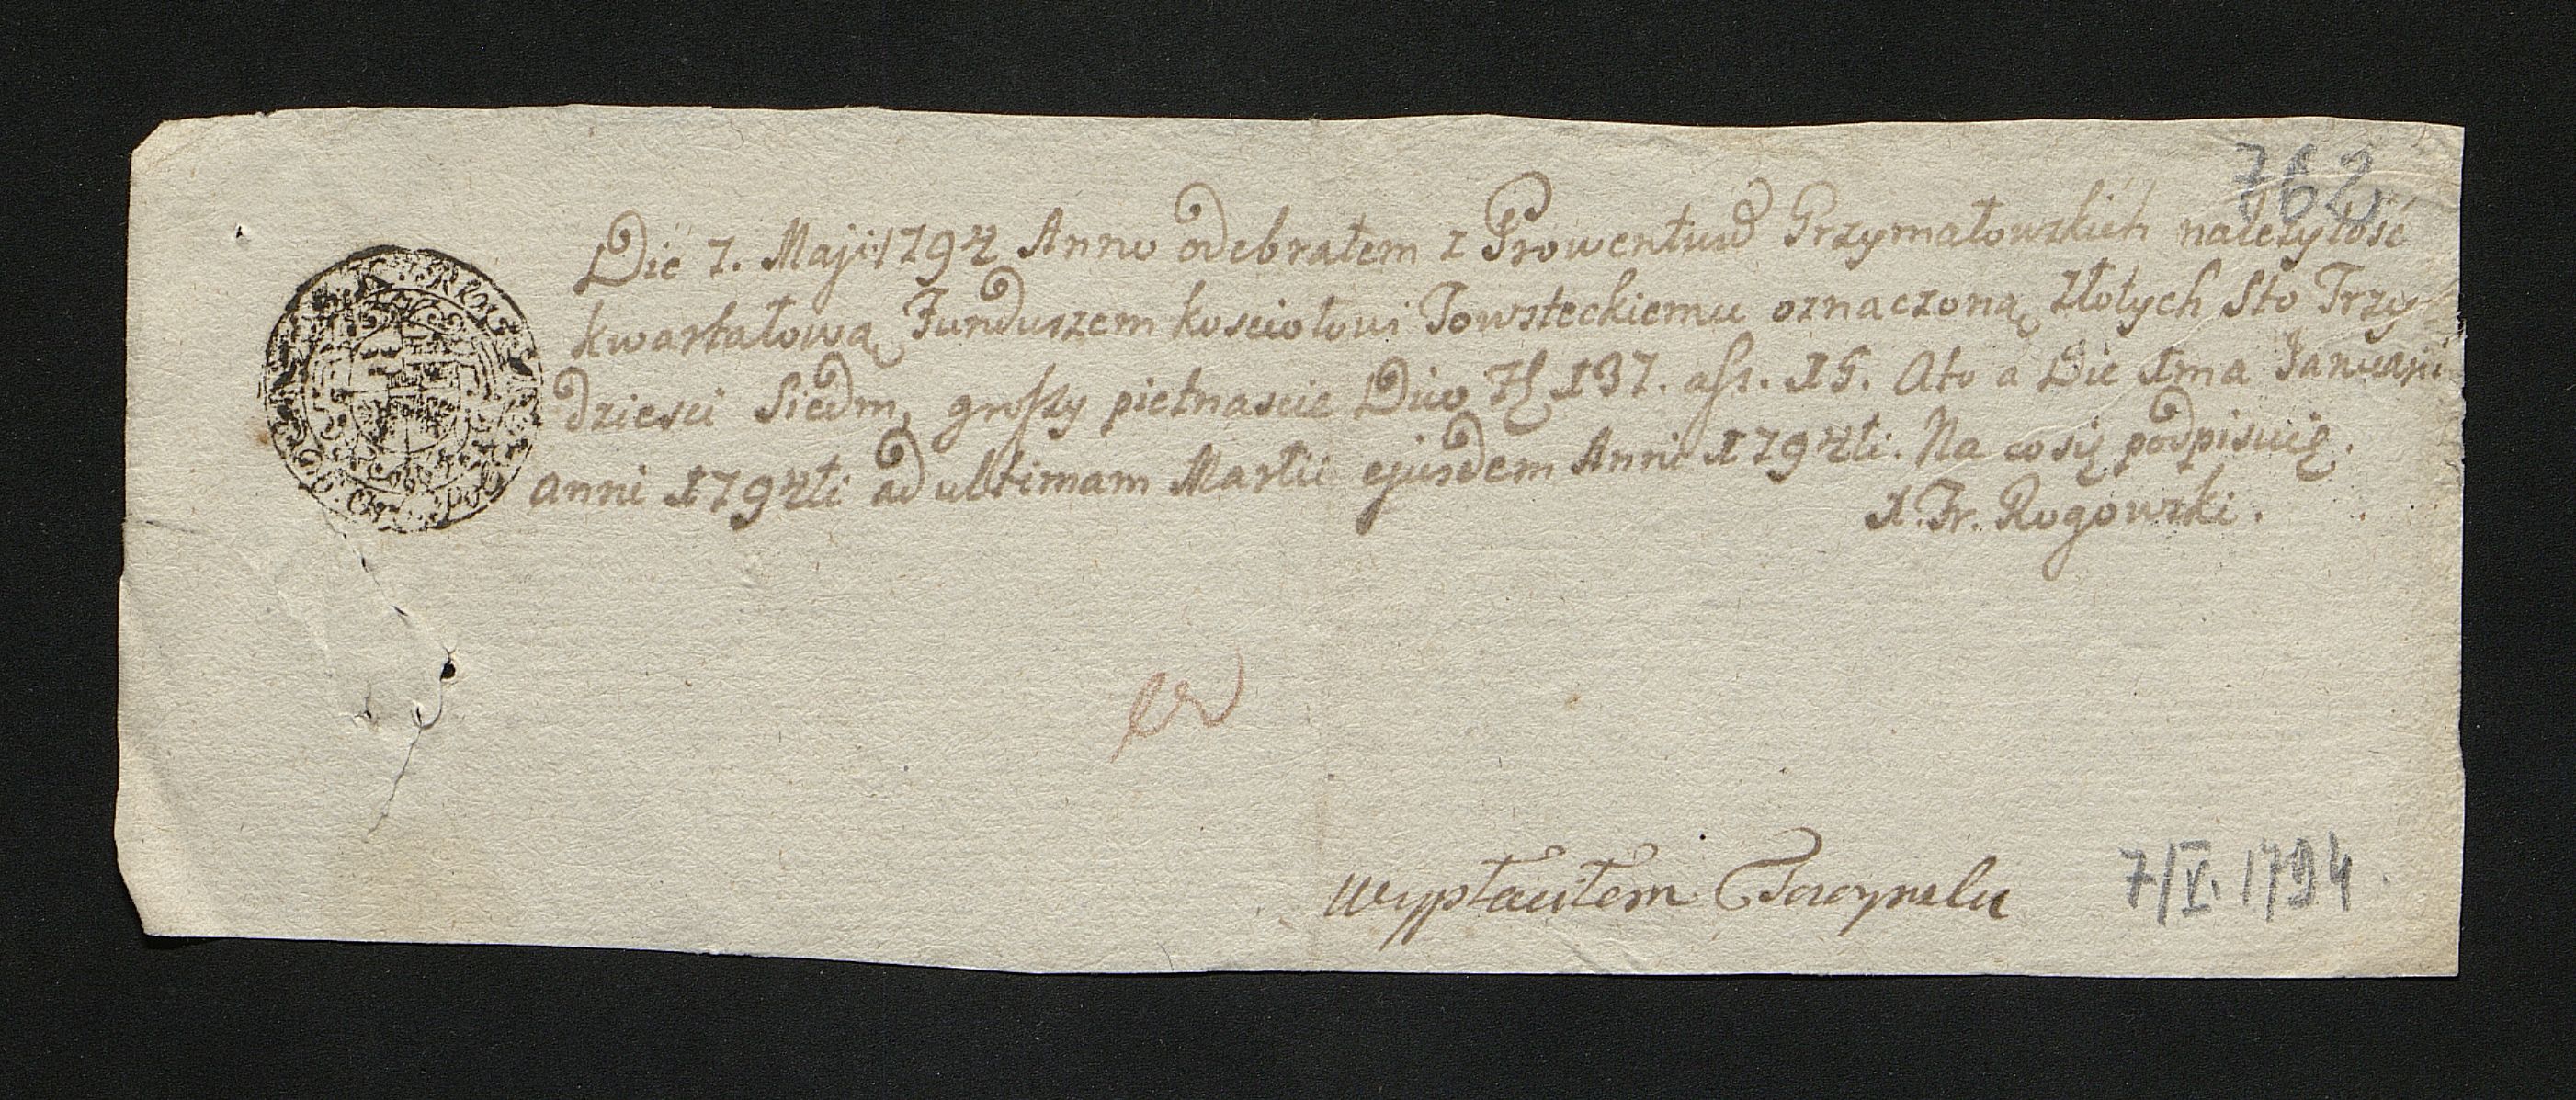 762
Die 7. Maji 1794 Anno odebrałem z Prowentuw Grzymałowskich należytość
kwartałową Funduszem kosciołowi Towsteckiemu oznaczoną złotych Sto Trzy
dziesci Siedm, groszy pietnascie Dico 137. 15. Ato a Die 1ma Januarii
anni 1794ti ad ultimam Martii ejusdem Anni 1794ti. Na co się podpisuię.
X. Fr. Rogowski.
wypłaciłem
7/V. 1794